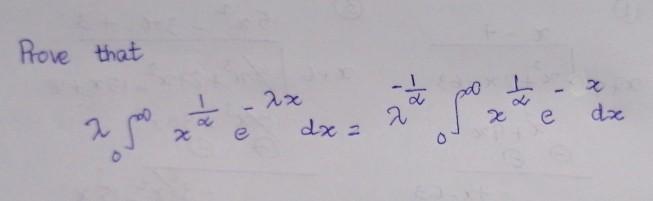 Prove that
λ ₀∫^∞ x^{1/α} e^{-λx} dx = λ^{-1/α} ₀∫^∞ x^{1/α} e^{-x} dx